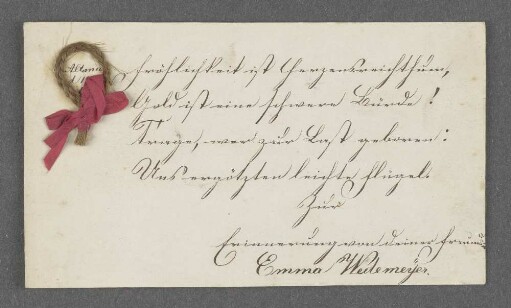 Altona
Fröhlichkeit ist Herzensreichthum,
Gold ist eine schwere Bürde!
Trage, wer zur Last geboren:
Uns ergötzten leichte Flügel.
Zur
Erinnerung von deiner Freundin
Emma Wedemeyer.